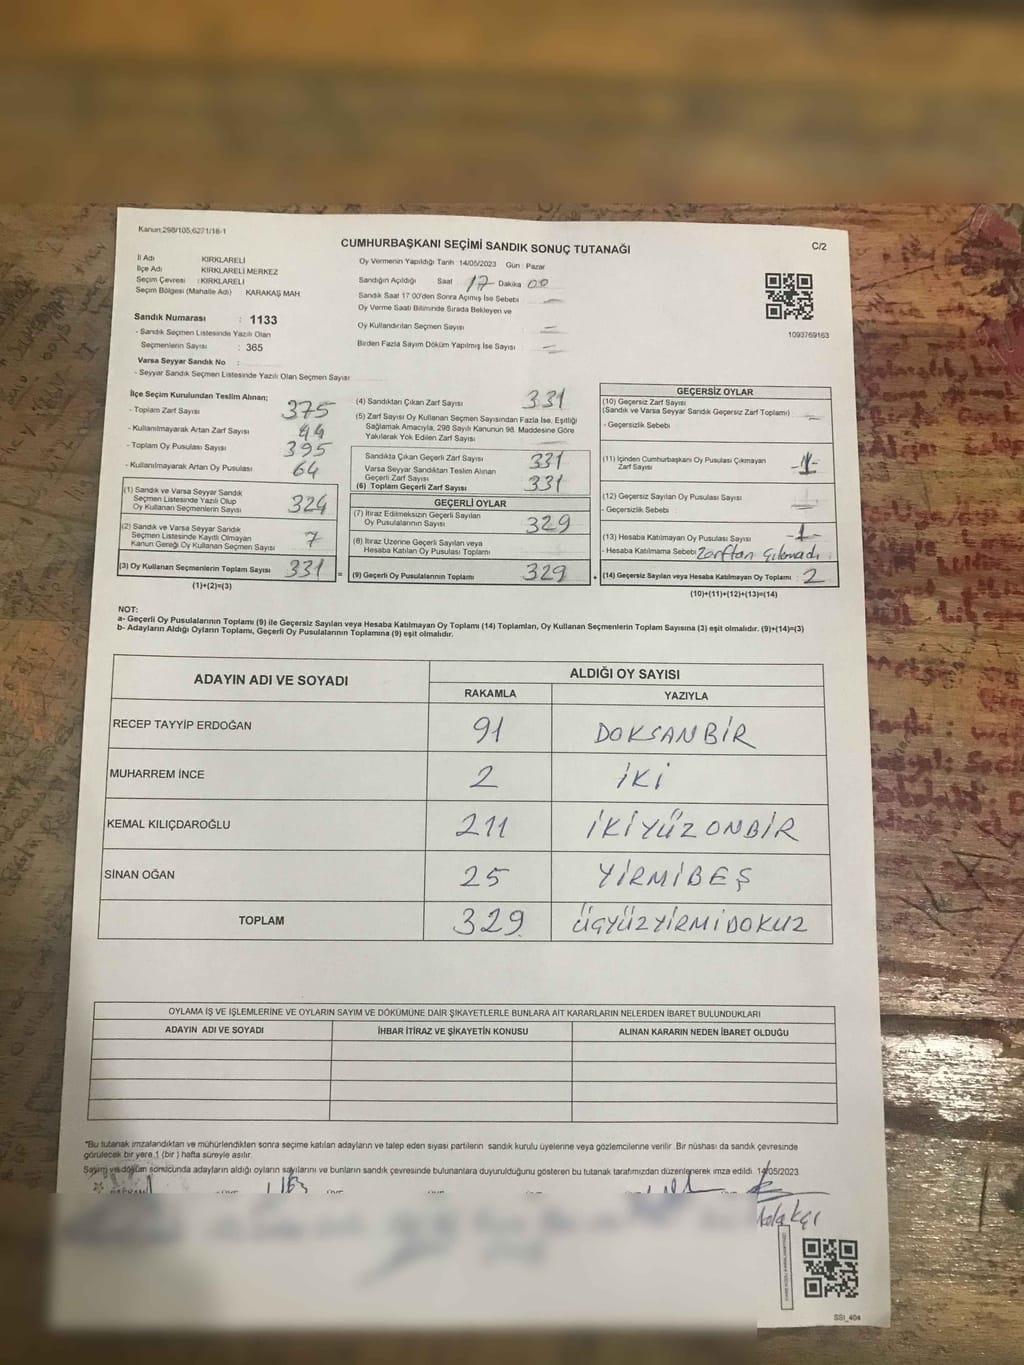 Kanun:298/105,6271/18-1
CUMHURBAŞKANI SEÇİMİ SANDIK SONUÇ TUTANAĞI
C/2
İl Adı : KIRKLARELİ
İlçe Adı : KIRKLARELİ MERKEZ
Seçim Çevresi : KIRKLARELİ
Seçim Bölgesi (Mahalle Adı) : KARAKAŞ MAH
Sandık Numarası : 1133
- Sandık Seçmen Listesinde Yazılı Olan
Seçmenlerin Sayısı : 365
Varsa Seyyar Sandık No :
- Seyyar Sandık Seçmen Listesinde Yazılı Olan Seçmen Sayısı
Oy Vermenin Yapıldığı Tarih : 14/05/2023 Gün : Pazar
Sandığın Açıldığı Saat 17 Dakika 00
Sandık Saat 17:00'den Sonra Açımış İse Sebebi
Oy Verme Saati Bitiminde Sırada Bekleyen ve
Oy Kullandırılan Seçmen Sayısı
Birden Fazla Sayım Döküm Yapılmış İse Sayısı
1093769163
İlçe Seçim Kurulundan Teslim Alınan;
- Toplam Zarf Sayısı 375
- Kullanılmayarak Artan Zarf Sayısı 44
- Toplam Oy Pusulası Sayısı 395
- Kullanılmayarak Artan Oy Pusulası 64
(1) Sandık ve Varsa Seyyar Sandık
Seçmen Listesinde Yazılı Olup
Oy Kullanan Seçmenlerin Sayısı 324
(2) Sandık ve Varsa Seyyar Sandık
Seçmen Listesinde Kayıtlı Olmayan
Kanun Gereği Oy Kullanan Seçmen Sayısı 7
(3) Oy Kullanan Seçmenlerin Toplam Sayısı 331
(1)+(2)=(3)
(4) Sandıktan Çıkan Zarf Sayısı 331
(5) Zarf Sayısı Oy Kullanan Seçmen Sayısından Fazla İse, Eşitliği
Sağlamak Amacıyla, 298 Sayılı Kanunun 98. Maddesine Göre
Yakılarak Yok Edilen Zarf Sayısı
Sandıkta Çıkan Geçerli Zarf Sayısı 331
Varsa Seyyar Sandıktan Teslim Alınan
Geçerli Zarf Sayısı
(6) Toplam Geçerli Zarf Sayısı 331
GEÇERLİ OYLAR
(7) İtiraz Edilmeksizin Geçerli Sayılan
Oy Pusulalarının Sayısı 329
(8) İtiraz Üzerine Geçerli Sayılan veya
Hesaba Katılan Oy Pusulası Toplamı
= (9) Geçerli Oy Pusulalarının Toplamı 329
GEÇERSİZ OYLAR
(10) Geçersiz Zarf Sayısı
(Sandık ve Varsa Seyyar Sandık Geçersiz Zarf Toplamı)
- Geçersizlik Sebebi
(11) İçinden Cumhurbaşkanı Oy Pusulası Çıkmayan
Zarf Sayısı -1-
(12) Geçersiz Sayılan Oy Pusulası Sayısı
- Geçersizlik Sebebi
(13) Hesaba Katılmayan Oy Pusulası Sayısı -1-
- Hesaba Katılmama Sebebi Zarftan Çıkmadı
+ (14) Geçersiz Sayılan veya Hesaba Katılmayan Oy Toplamı : 2
(10)+(11)+(12)+(13)=(14)
NOT:
a- Geçerli Oy Pusulalarının Toplamı (9) ile Geçersiz Sayılan veya Hesaba Katılmayan Oy Toplamı (14) Toplamları, Oy Kullanan Seçmenlerin Toplam Sayısına (3) eşit olmalıdır. (9)+(14)=(3)
b- Adayların Aldığı Oyların Toplamı, Geçerli Oy Pusulalarının Toplamına (9) eşit olmalıdır.
ADAYIN ADI VE SOYADI ALDIĞI OY SAYISI
RAKAMLA YAZIYLA
RECEP TAYYİP ERDOĞAN 91 DOKSANBİR
MUHARREM İNCE 2 İKİ
KEMAL KILIÇDAROĞLU 211 İKİYÜZONBİR
SİNAN OĞAN 25 YİRMİBEŞ
TOPLAM 329 ÜÇYÜZYİRMİDOKUZ
OYLAMA İŞ VE İŞLEMLERİNE VE OYLARIN SAYIM VE DÖKÜMÜNE DAİR ŞİKAYETLERLE BUNLARA AİT KARARLARIN NELERDEN İBARET BULUNDUKLARI
ADAYIN ADI VE SOYADI İHBAR İTİRAZ VE ŞİKAYETİN KONUSU ALINAN KARARIN NEDEN İBARET OLDUĞU
*Bu tutanak imzalandıktan ve mühürlendikten sonra seçime katılan adayların ve talep eden siyasi partilerin sandık kurulu üyelerine veya gözlemcilerine verilir. Bir nüshası da sandık çevresinde
görülecek bir yere 1 (bir) hafta süreyle asılır.
Sayım ve döküm sonucunda adayların aldığı oyların sayılarını ve bunların sandık çevresinde bulunanlara duyurulduğunu gösteren bu tutanak tarafımızdan düzenlenerek imza edildi. 14/05/2023
SSİ_40a